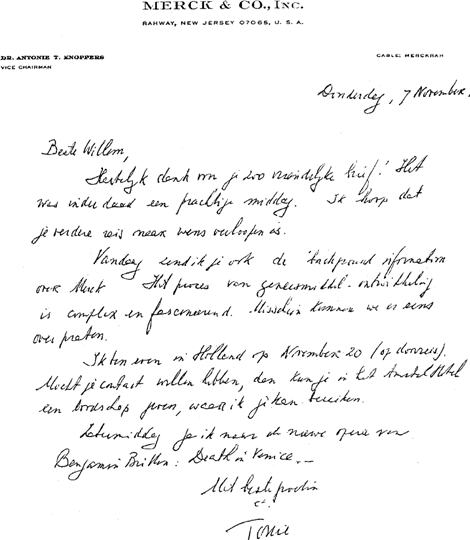 MERCK & CO., INC.
RAHWAY, NEW JERSEY 07065, U. S. A.
DR. ANTONIE T. KNOPPERS
VICE CHAIRMAN
CABLE: MERCKRAH
Donderdag, 7 November.
Beste Willem,
Hartelijk dank voor je zoo vriendelijke brief! Het
was inderdaad een prachtige middag. Ik hoop dat
je verdere reis naar wens verloopen is.
Vandaag zend ik je ook de background information
over Merck Het proces van geneesmiddel-ontwikkeling
is complex en fascinerend. Misschien kunnen we er eens
over praten.
Ik ben even in Holland op November 20 (op doorreis).
Mocht je contact willen hebben, dan kun je in het Amstel Hotel
een boodschap geven, waar ik je kan bereiken.
ga ik naar de nieuwe opera van
Benjamin Britten: Death in Venice.—
Met beste groeten
Tonie